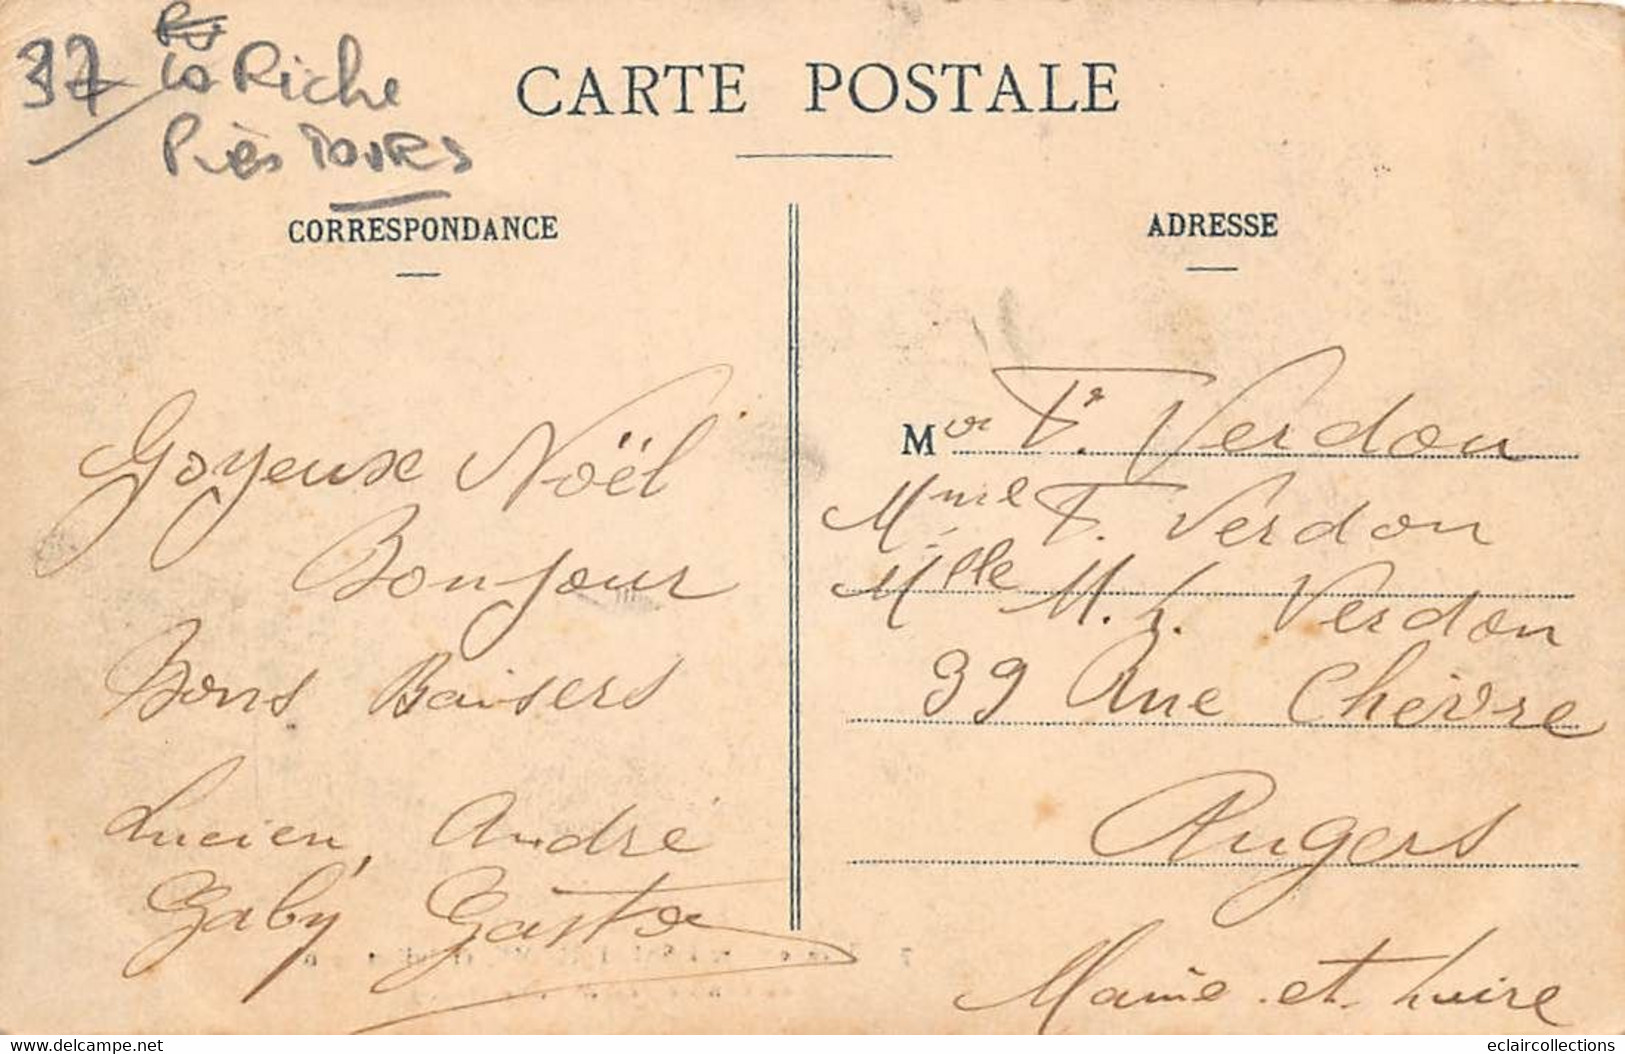 37 La Riche
Près TOURS
CARTE POSTALE
CORRESPONDANCE
ADRESSE
Goyeuse Noël
Bonjour
Bons Baisers
Lucien, André
Gaby Gaston
Mr F. Verdon
Mme F. Verdon
Mlle M. L. Verdon
39 Rue Chèvre
Angers
Maine-et-Loire
www.delcampe.net
eclaircollections